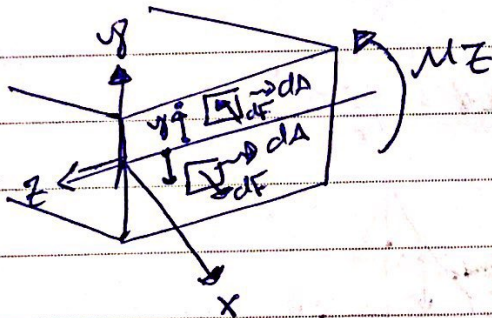 y
Mz
y dA
dF
dA
dF
z
x